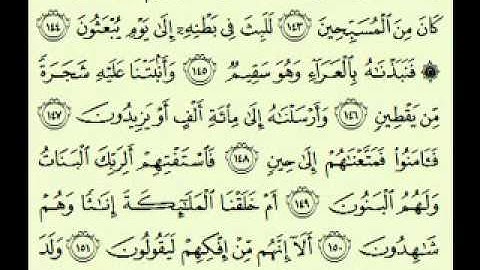 كَانَ مِنَ ٱلْمُسَبِّحِينَ ١٤٣ لَلَبِثَ فِى بَطْنِهِۦٓ إِلَىٰ يَوْمِ يُبْعَثُونَ ١٤٤
۞ فَنَبَذْنَٰهُ بِٱلْعَرَآءِ وَهُوَ سَقِيمٌ ١٤٥ وَأَنۢبَتْنَا عَلَيْهِ شَجَرَةً
مِّن يَقْطِينٍ ١٤٦ وَأَرْسَلْنَٰهُ إِلَىٰ مِا۟ئَةِ أَلْفٍ أَوْ يَزِيدُونَ ١٤٧
فَـَٔامَنُوا۟ فَمَتَّعْنَٰهُمْ إِلَىٰ حِينٍ ١٤٨ فَٱسْتَفْتِهِمْ أَلِرَبِّكَ ٱلْبَنَاتُ
وَلَهُمُ ٱلْبَنُونَ ١٤٩ أَمْ خَلَقْنَا ٱلْمَلَٰٓئِكَةَ إِنَٰثًا وَهُمْ
شَٰهِدُونَ ١٥٠ أَلَآ إِنَّهُم مِّنْ إِفْكِهِمْ لَيَقُولُونَ ١٥١ وَلَدَ